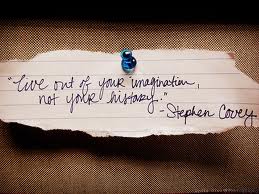 "Live out of your imagination,
not your history."
- Stephen Covey